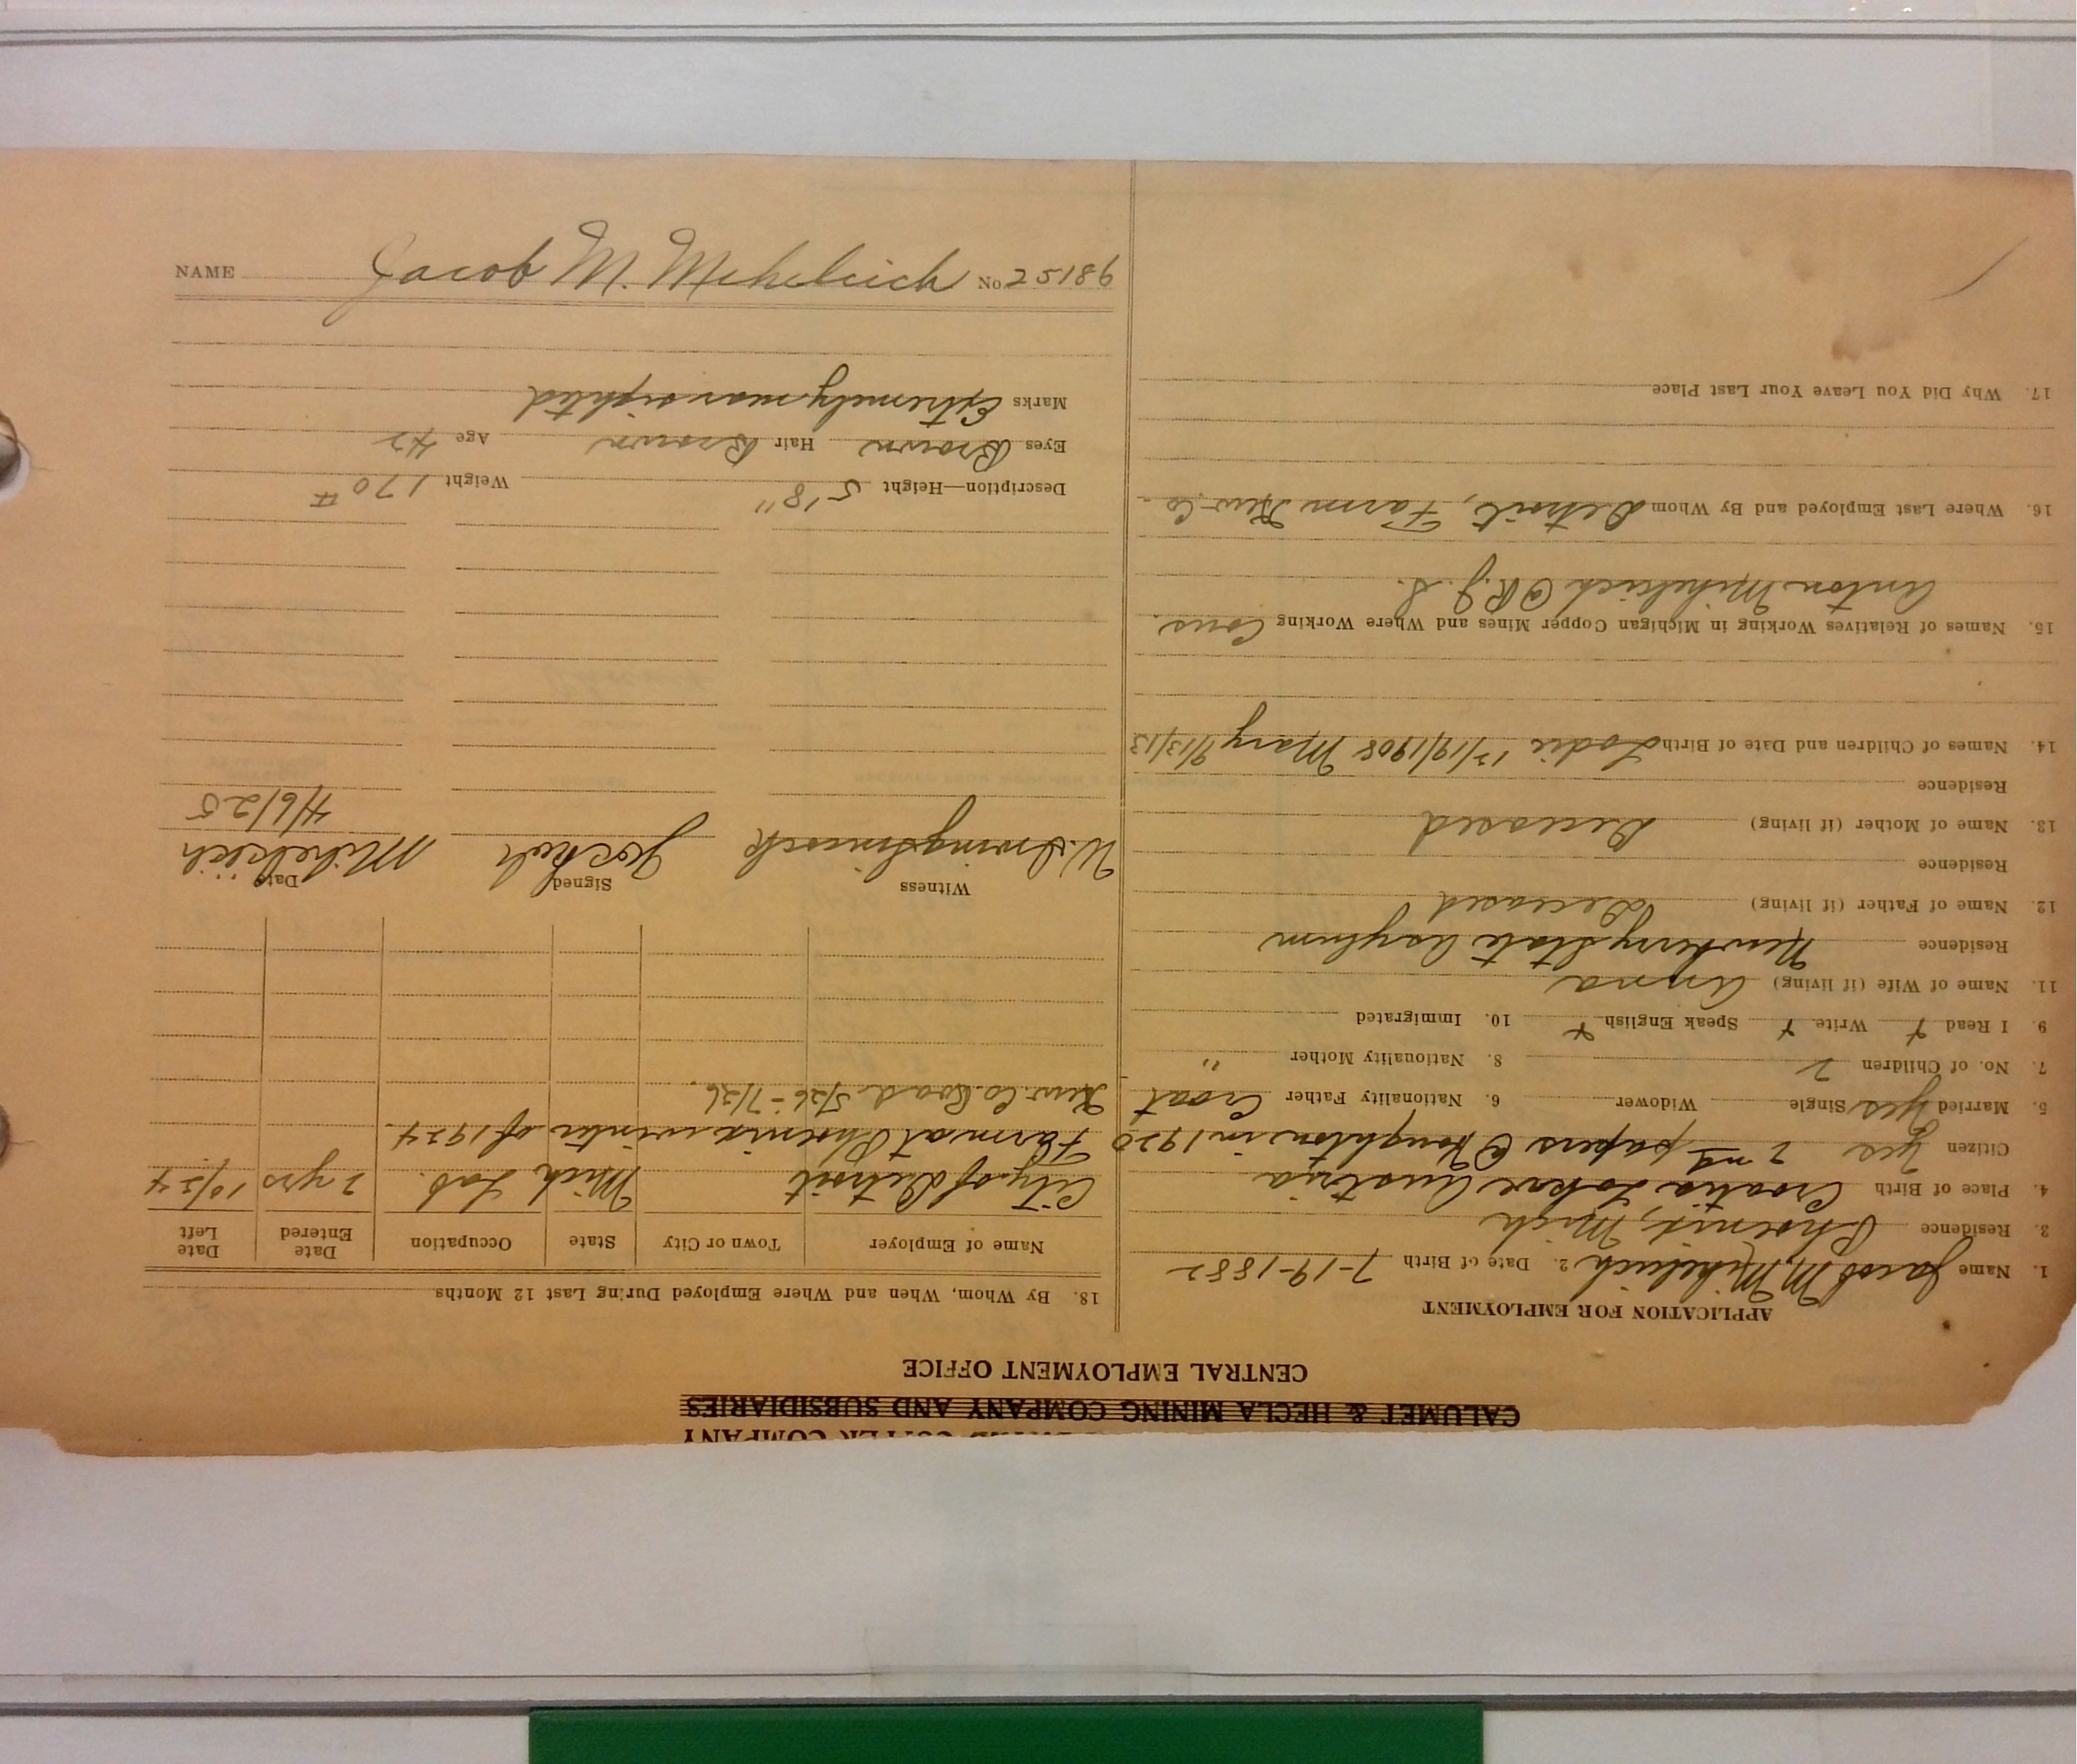 COPPER COMPANY
CALUMET & HECLA MINING COMPANY AND SUBSIDIARIES
CENTRAL EMPLOYMENT OFFICE
APPLICATION FOR EMPLOYMENT
1. Name Jacob M. Mihelcich 2. Date of Birth 7-19-1882
3. Residence Phoenix, Mich
4. Place of Birth Croatia Austria
Citizen yes 2nd papers @ Houghton in 1920
5. Married yes Single Widower 6. Nationality Father Croat
7. No. of Children 2 8. Nationality Mother "
9. I Read + Write + Speak English + 10. Immigrated
11. Name of Wife (if living) Anna
Residence Newberry State Asylum
12. Name of Father (if living) Deceased
Residence
13. Name of Mother (if living) Deceased
Residence
14. Names of Children and Date of Birth 12/19/1908 Mary 9/13/13
15. Names of Relatives Working in Michigan Copper Mines and Where Working Cous.
Anton Mihelcich @ R.J.S.
16. Where Last Employed and By Whom Detroit, Farm Kew. Co.
17. Why Did You Leave Your Last Place
18. By Whom, When and Where Employed During Last 12 Months
Name of Employer Town or City State Occupation Date Entered Date Left
City of Detroit Mich Lab. 2 yrs 10/24
Farm at Phoenix winter of 1924.
Kew. Co. Road 5/26-7/26.
Witness Signed Date
Mihelcich
4/6/25
Description—Height 5'8" Weight 170 #
Eyes Brown Hair Brown Age 42
Marks Extremely near sighted
NAME Jacob M. Mihelcich No 25186